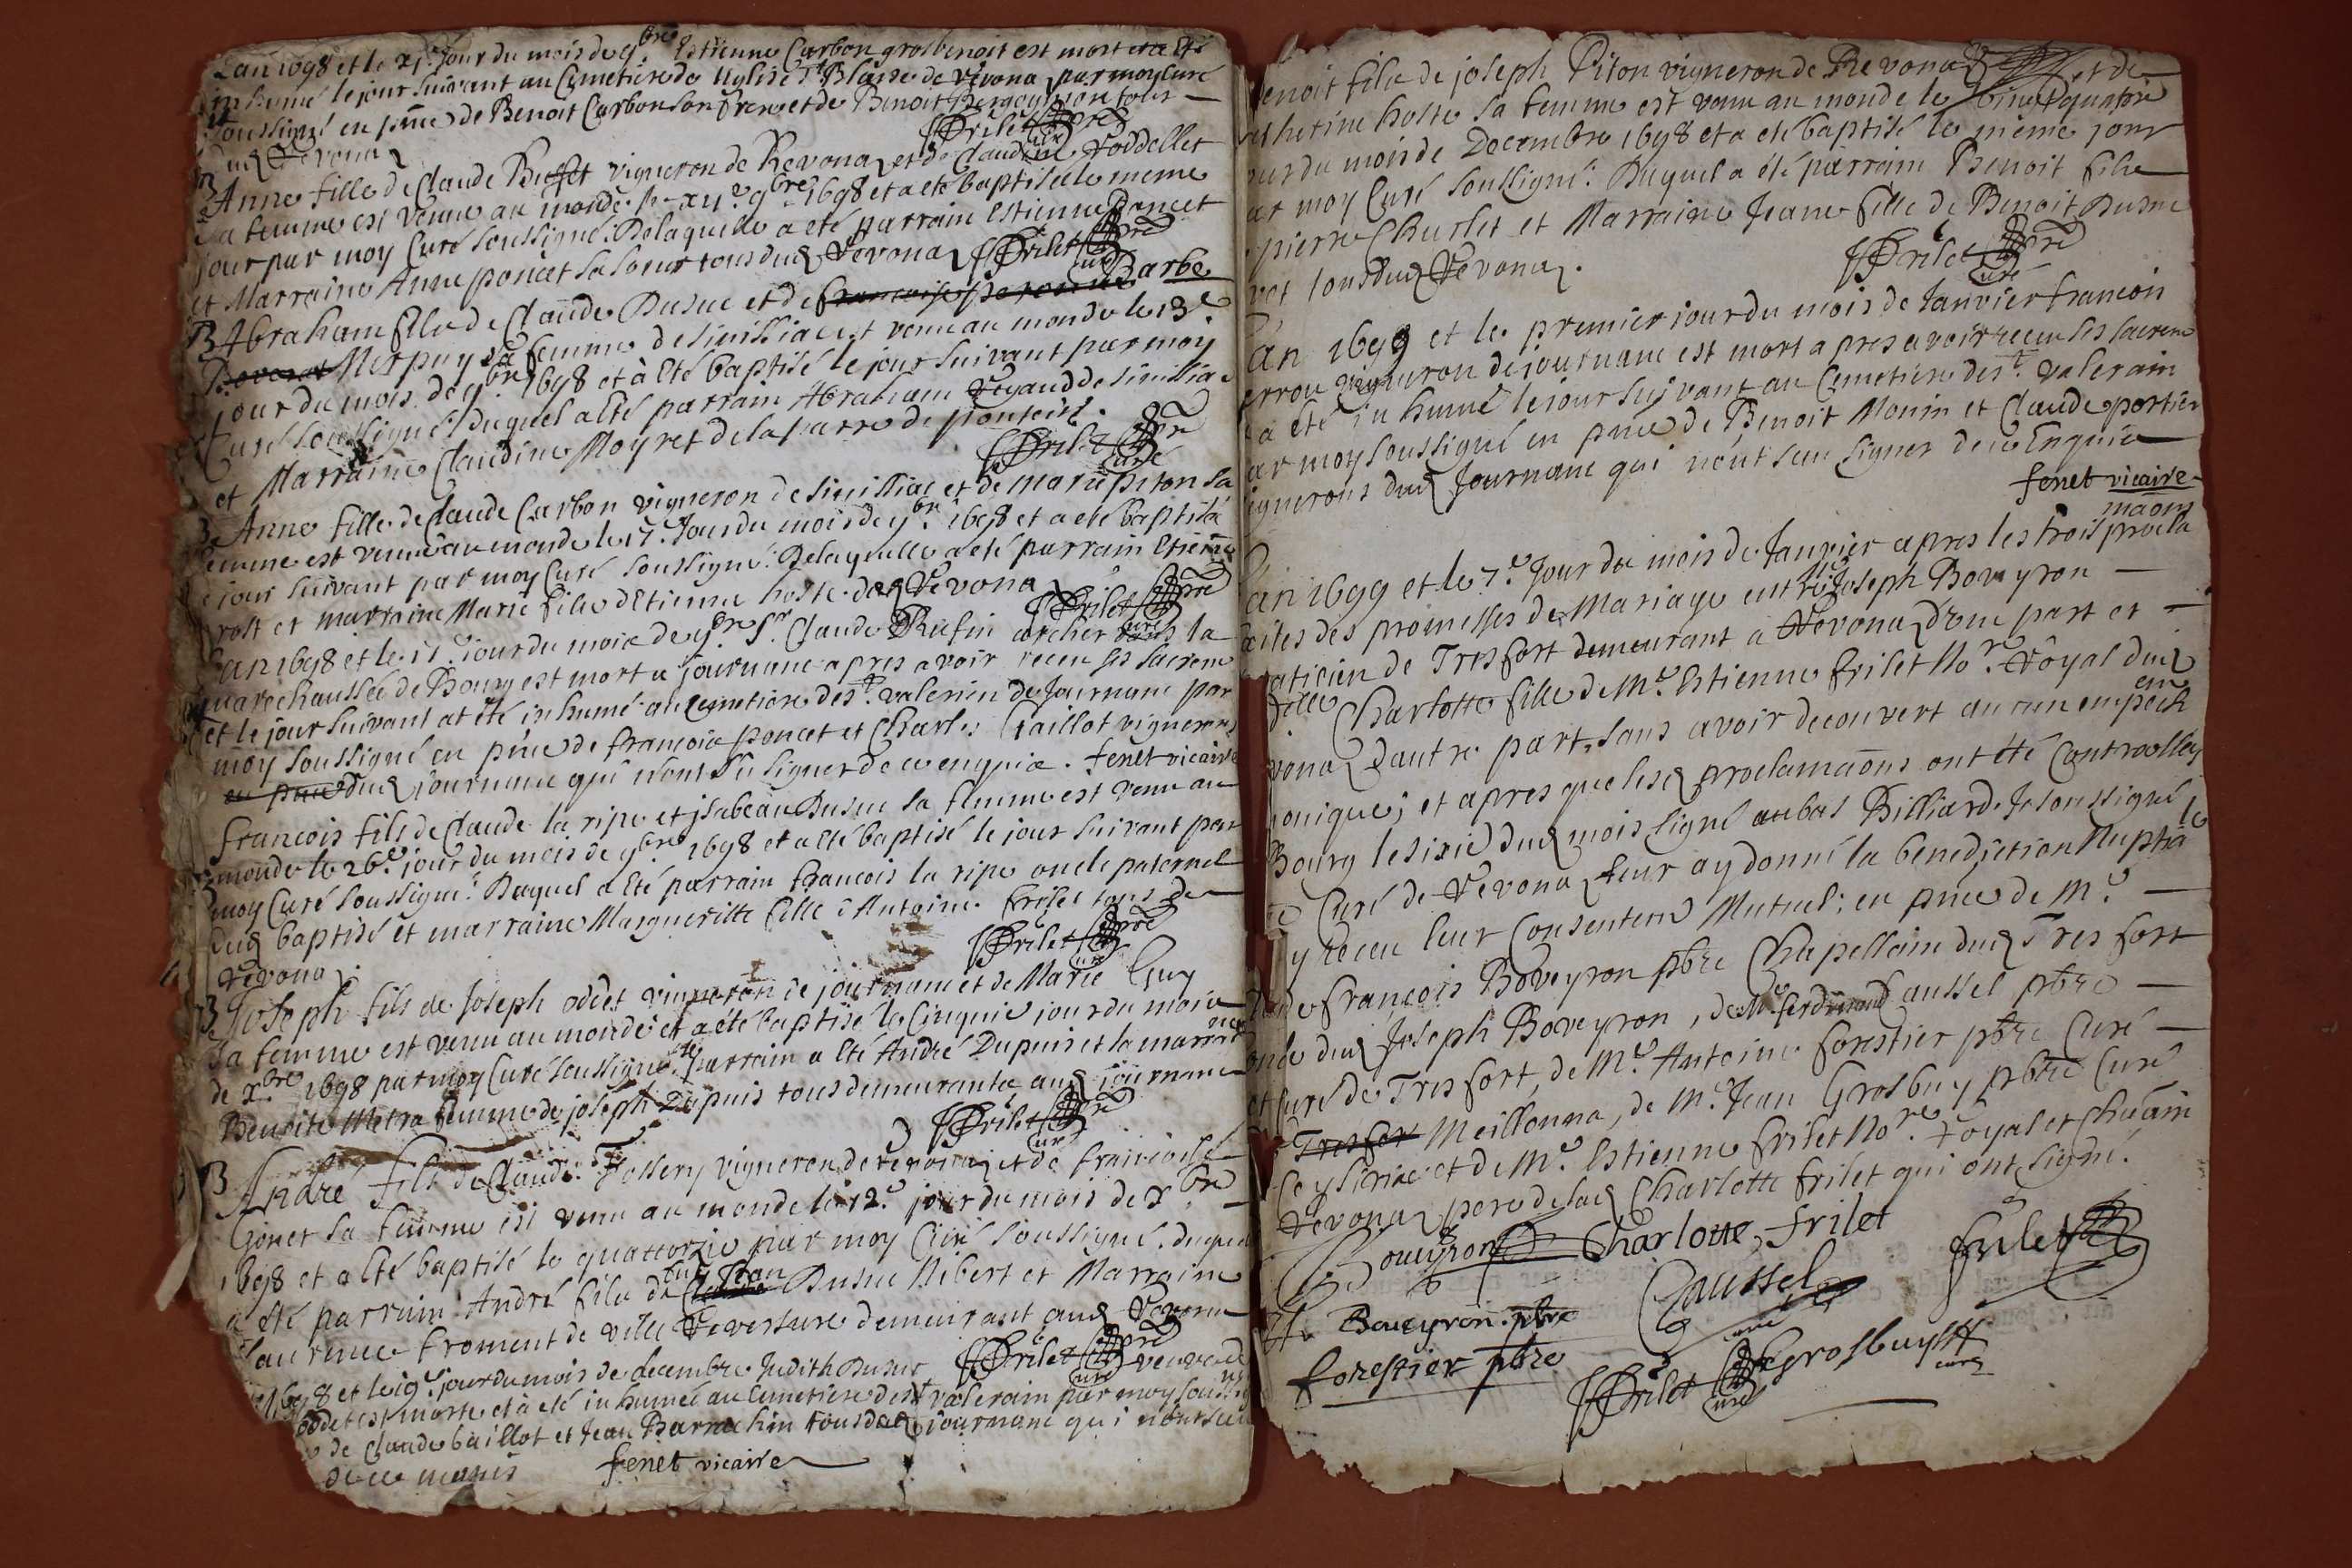 L'an 1698 et le xj. jour du mois de 9bre Estienne Carbon grosbenoit est mort et a été
inhumé le jour suivant au Cimetiere de l'Eglise St Blaise de Revona par moy Curé
soussigné en pnce de Benoit Carbon son frere et de Benoit tous
dud Revona
FFrilet pre curé
B Anne fille de Claude Buffet vigneron de Revona et de Claudine Poddellet
sa femme est venue au monde le xij.e 9bre 1698 et a eté baptisée le meme
jour par moy Curé soussigné: De laquelle a eté parrain Estienne Poncet
et Marraine Anne poncet sa soeur tous dud Revona FFrilet pre curé
B Abraham fils de Claude Dusuc et de francoise peronne Barbe
Boverat Merpuy sa femme de simissiac est venu au monde le 13.e
jour du mois de 9bre 1698 et à eté baptisé le jour suivant par moy
Curé soussigné: Duquel a eté parrain Abraham Reyaud de simissia
et Marraine Claudine Moyret de la parre de
FFrilet pre curé
B Anne fille de Claude Carbon vigneron de simissiac et de marie piton sa
femme est venue au monde le 17. Jour du mois de 9bre 1698 et a eté baptisé
le jour suivant par moy Curé soussigné: De laquelle a eté parrain Etienne
rost et marraine Marie fille d'Etienne hoste dud Revona
FFrilet pre curé
L'an 1698 et le 17. jour du mois de 9bre Sr Claude Rufin archer dans la
marechaussée de Bourg est mort a journanc apres avoir receu ses sacrem
et le jour suivant at été inhumé au cemetiere de st. valerien de Journanc par
moy soussigné en pnce de francois poncet et Charles Gaillot vignerons
en pnce dud journanc qui n'ont sçu signer de ce enquis. fenet vicaire
francois fils de Claude la ripe et jsabeau Dusuc sa femme est venu au
monde le 26.e jour du mois de 9bre 1698 et a eté baptisé le jour suivant par
moy Curé soussigné: Duquel a eté parrain francois la ripe oncle paternel
dud baptisé et marraine Marguerite fille d'Antoine frilet tous de
Revona
FFrilet pre curé
B Joseph fils de Joseph odet vigneron de journanc et de Marie Guy
sa femme est venu au monde et a eté baptisé le Cinquie jour du mois
de Xbre 1698 par moy Curé soussigné. le parrain a eté André Dupuis et la marrne
Benoite Metra femme de joseph Dupuis tous demeurants aud journanc
FFrilet pre curé
B André fils de Claude Fossery vigneron de revona et de francoise
Gonet sa femme est venu au monde le 12.e jour du mois de Xbre
1698 et a eté baptisé le quattorzie par moy Curé soussigné. duquel
a été parrain André fils de feu Jean Dusuc Nibert et Marraine
Laurence froment de ville Reversure demeurant aud Revona
FFrilet pre curé
1698 et le 19.e jour du mois de decembre Judith Dusuc veuve de
odet est morte et à eté inhumée au Cimetiere de st valerain par moy soussigné
de Claude baillot et Jean Barrachin tous dud journanc qui n'ont sceu
de ce enquis fenet vicaire
Benoit fils de joseph Piton vigneron de Revona et de
Catherine hoste sa femme est venu au monde le vingt quatre
jour du mois de Decembre 1698 et a eté baptisé le même jour
par moy Curé soussigné: Duquel a été parrain Benoit fils
pierre Churlet et Marraine Jeane fille de Benoit Dusuc
tous dud Revona.
FFrilet pre curé
L'an 1699 et le premier jour du mois de Janvier francois
perrou vigneron de journanc est mort apres avoir receu ses sacrem
a eté inhumé le jour suivant au Cemetiere de st. valerain
par moy soussigné en pnce de Benoit Monin et Claude portier
vignerons dud Journanc qui n'ont sceu signer de ce Enquis
fenet vicaire
L'an 1699 et le 7.e Jour du mois de Janvier apres les trois proclamaons
faites des promesses de Mariage entre Joseph Boveyron
praticien de Tresfort demeurant à Revona d'une part et
dlle Charlotte fille de Me. Estienne frilet Nore. Royal dud
Revona d'autre part, sans avoir decouvert aucun empech
canonique; et apres que lesd proclamaons ont été Controollez
Bourg le sixie dud mois signé au bas Billiard. Je soussigné
pre Curé de Revona leur ay donné la benediction Nuptiale
y receu leur Consentem Mutuel; en pnce de Me.
francois Boveyron pbre Chapellain dud Tresfort
oncle dud Joseph Boveyron, de Me ferdinand Caussel pbre
et curé de Tresfort, de Me. Antoine forestier pbre Curé
Tresfor Meillonna, de Me. Jean Grosbuy pbre Curé
Ceyseriac et de Me. Estienne frilet Nore. Royal et Chatain
Revona pere de lad Charlotte frilet qui ont signé.
Boveyron Charlotte frilet frilet
Boveyron pbre Caussel curé
forestier pbre FFrilet pre curé Grosbuy curé